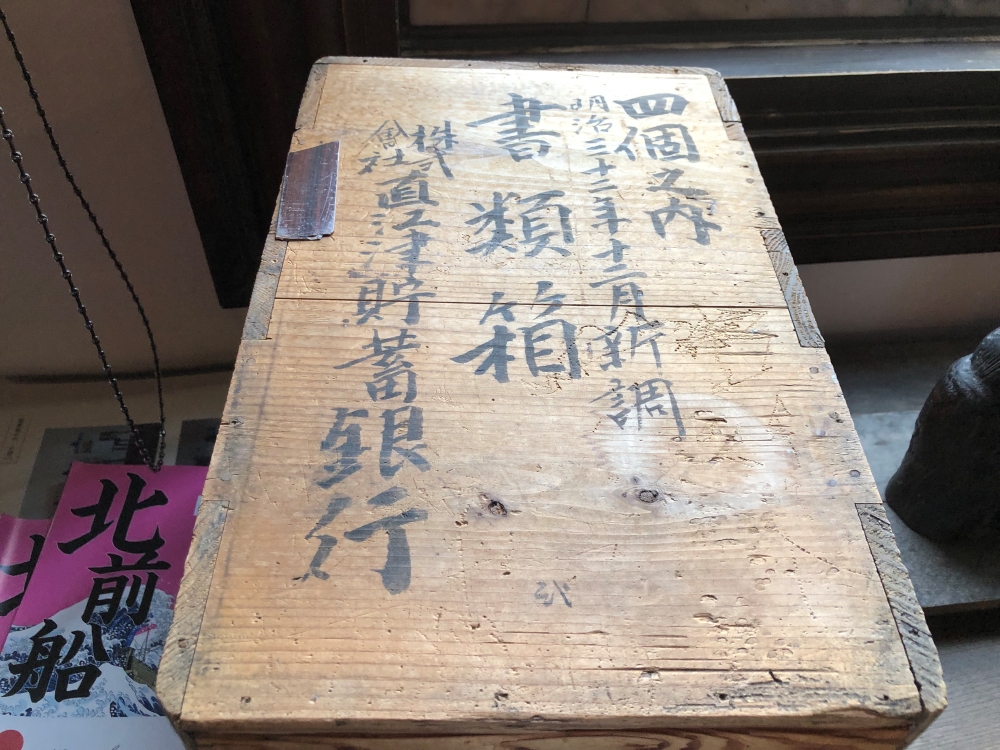 四個之内
明治三十二年十二月新調
書類箱
株式會社直江津貯蓄銀行
弐
北前船
北